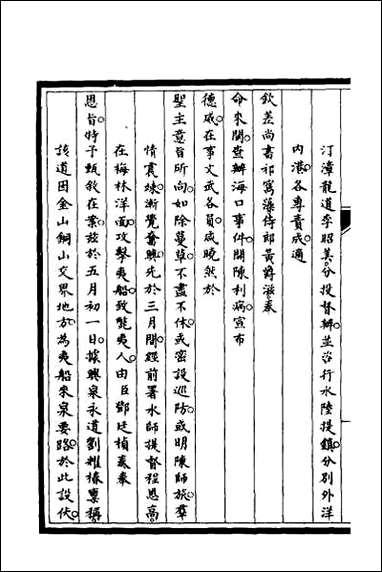 汀漳龍道李昭美分投督辦並咨行水陸提鎮分別外洋
內港各專責成適
欽差尚書祁寯藻侍郎黃爵滋奉
命來閩查辦海口事件開陳利病宣布
德威在事文武各員咸曉然於
聖主意旨所向如除蔓草不盡不休或密設巡防或明陳師旅羣
情震竦漸覺奮興先於三月間經前署水師提督程恩高
在梅林洋面攻擊夷船致斃夷人由臣鄧廷楨奏奉
恩旨特予甄敘在案茲於五月初一日據興泉永道劉耀椿稟稱
該道因金山銅山交界地方為夷船來泉要路於此設伏